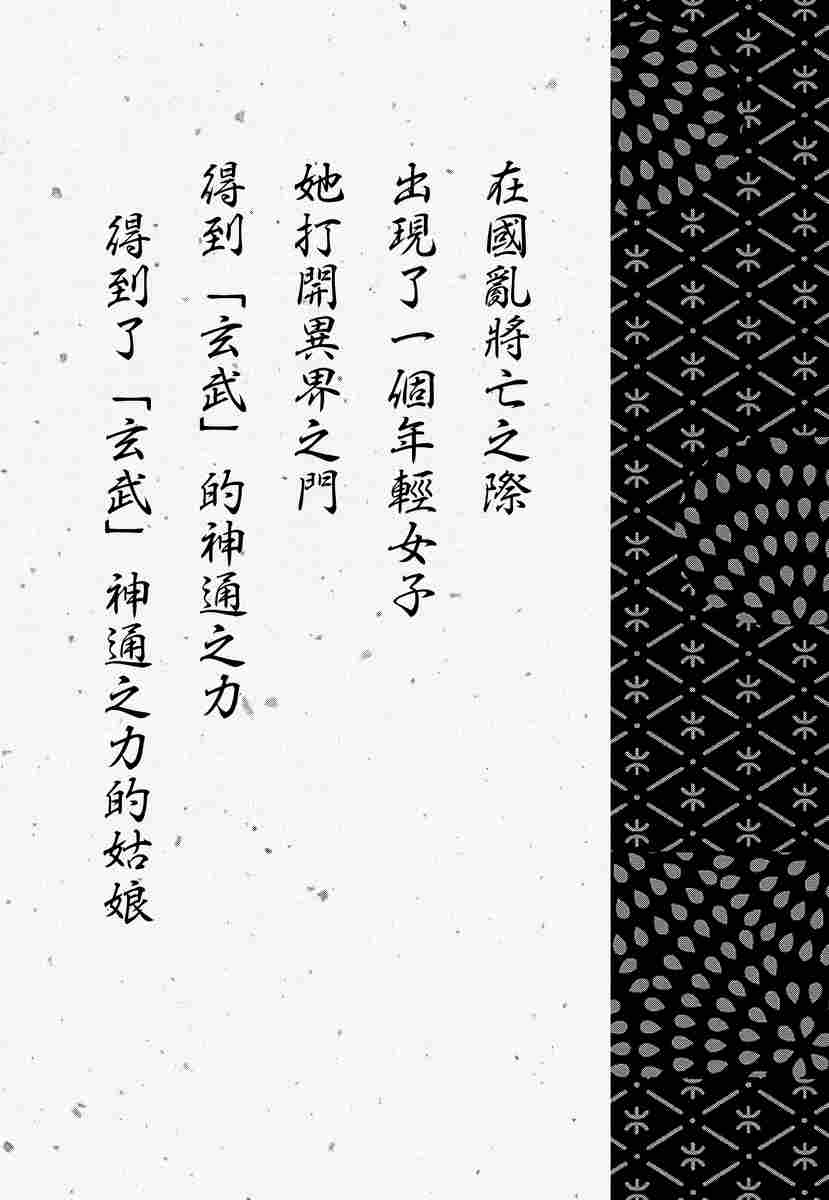 在國亂將亡之際
出現了一個年輕女子
她打開異界之門
得到「玄武」的神通之力
得到了「玄武」神通之力的姑娘